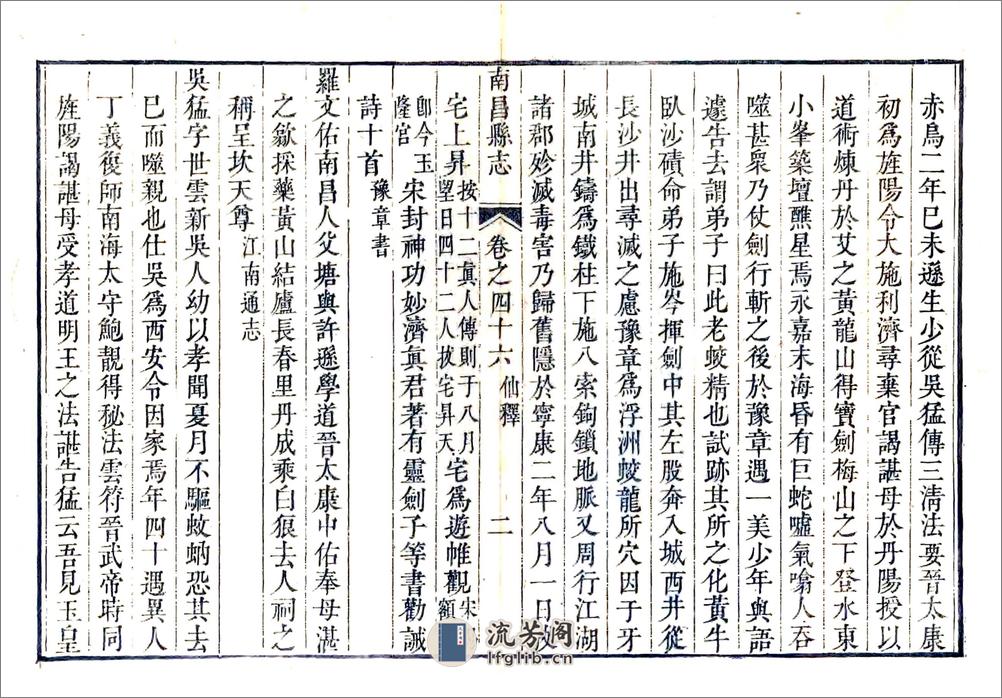 赤烏二年巳未遜生少從吳猛傳三淸法要晉太康
初爲旌陽令大施利濟尋棄官謁諶母於丹陽授以
道術煉丹於艾之黃龍山得寶劍梅山之下登水東
小峯築壇醮星焉永嘉末海昏有巨蛇噓氣噏人吞
噬甚衆乃仗劍行斬之後於豫章遇一美少年與語
遽告去謂弟子曰此老蛟精也試跡其所之化黃牛
臥沙磧命弟子施岑揮劍中其左股奔入城西井從
長沙井出尋滅之慮豫章爲浮洲蛟龍所穴因于牙
城南井鑄爲鐵柱下施八索鉤鎖地脈又周行江湖
諸郡殄滅毒害乃歸舊隱於寧康二年八月一日
南昌縣志
卷之四十六
仙釋
二
宅上昇
按十二眞人傳則于八月
望日四十二人拔宅昇天
宅爲遊帷觀
宋額
卽今玉
隆宫
宋封神功妙濟眞君著有靈劍子等書勸誡
詩十首
豫章書
羅文佑南昌人父塘與許遜學道晉太康中佑奉母湛
之歙採藥黃山結廬長春里丹成乘白狼去人祠之
稱呈坎天尊
江南通志
吳猛字世雲新吳人幼以孝聞夏月不驅蚊蚋恐其去
已而噬親也仕吳爲西安令因家焉年四十遇異人
丁義復師南海太守鮑靚得秘法雲符晉武帝時同
旌陽謁諶母受孝道明王之法諶告猛云吾見玉呈
流芳阁
lfglib.cn